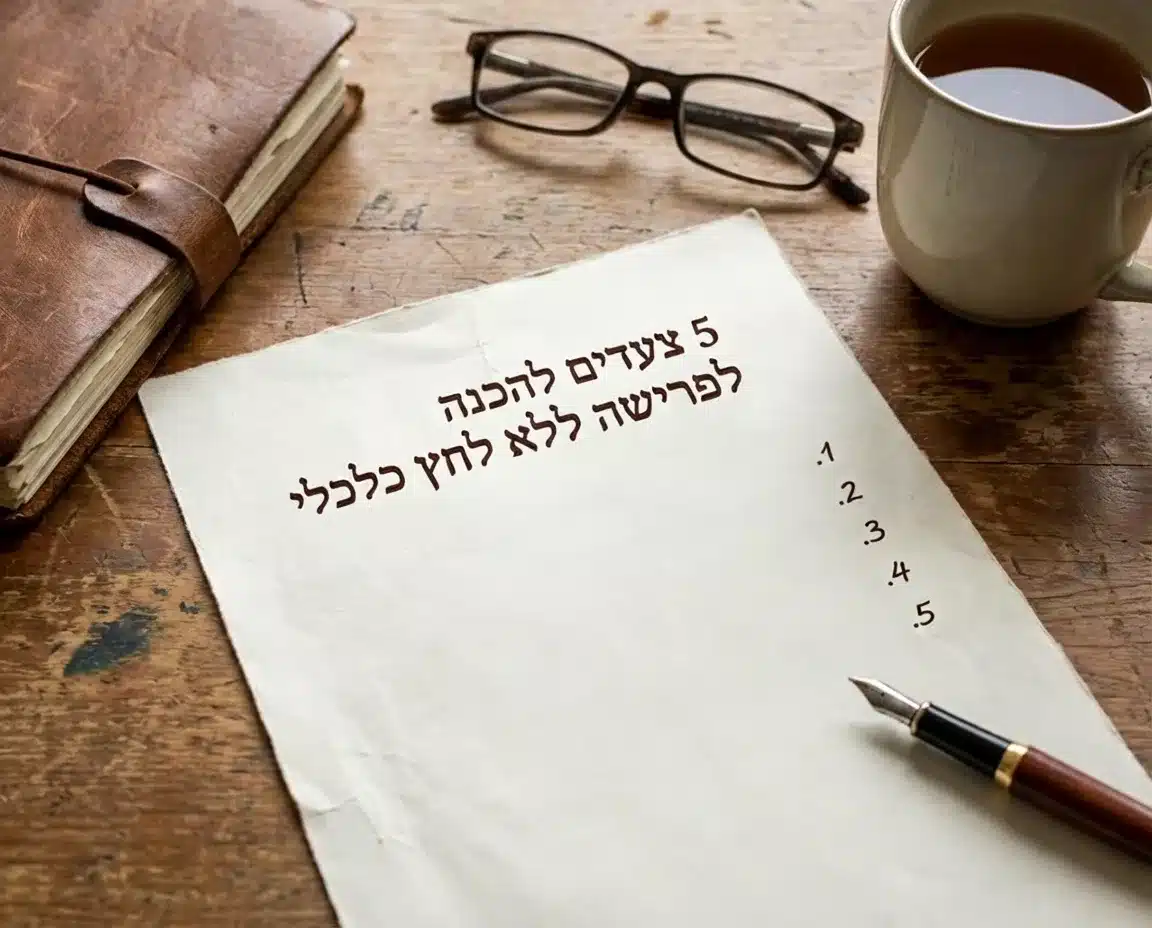 5 צעדים להכנה
לפרישה ללא לחץ כלכלי
.1
.2
.3
.4
.5